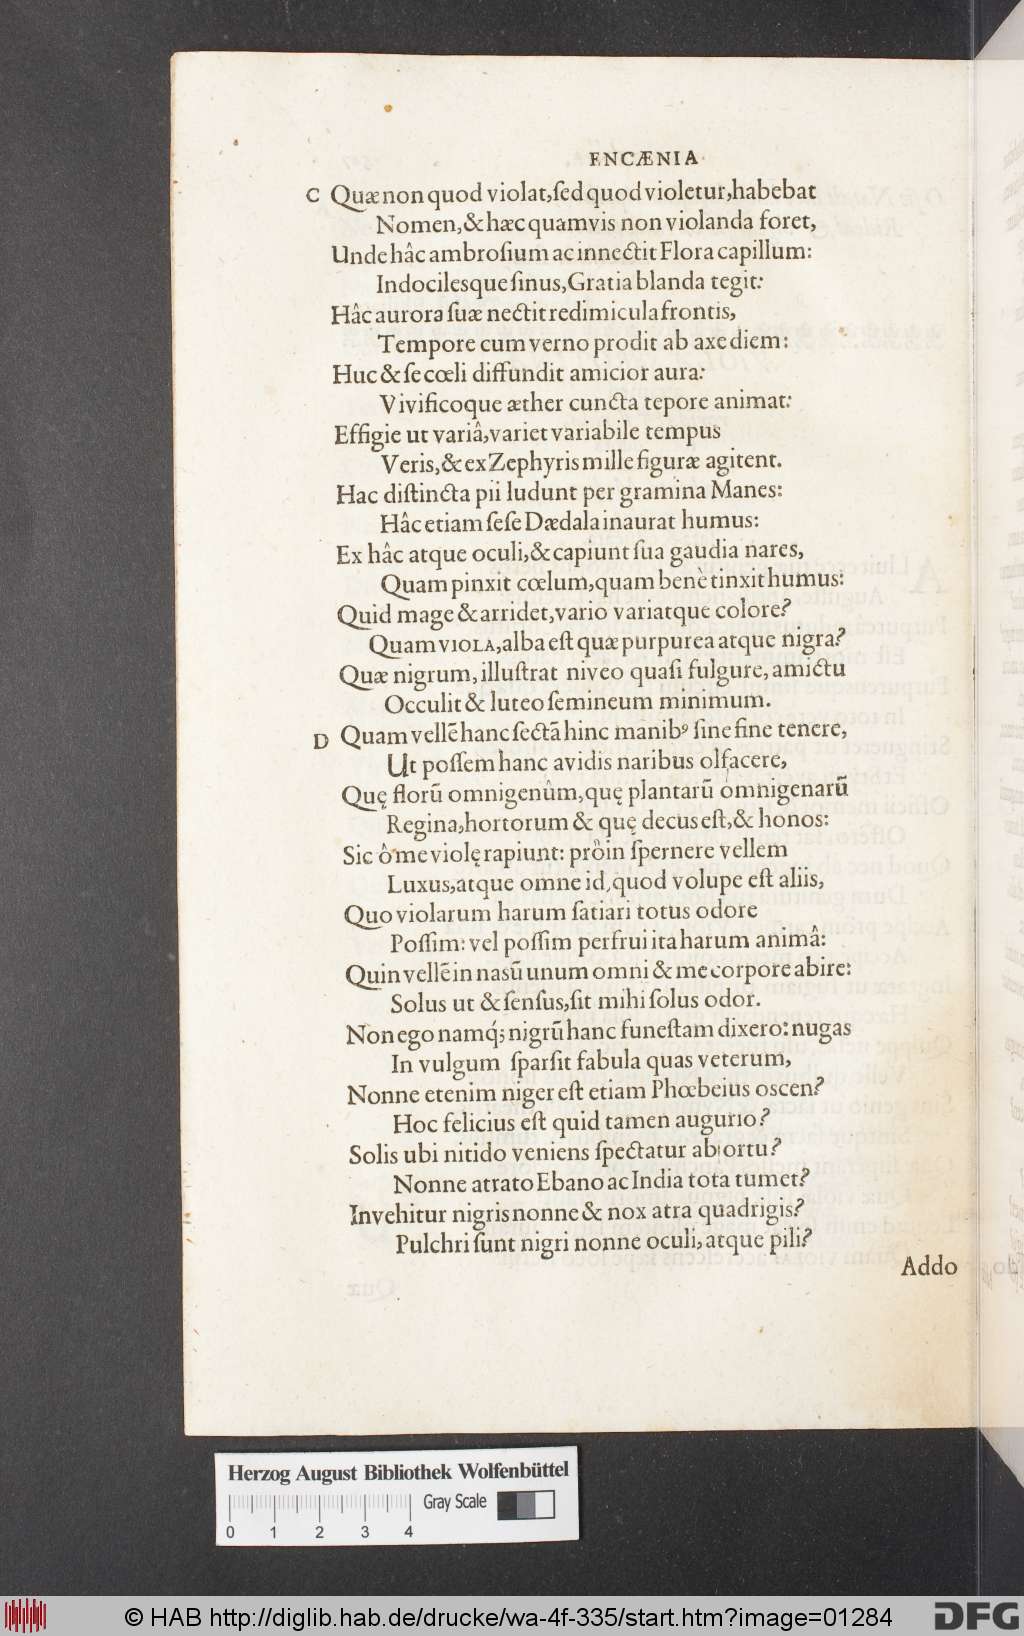 ENCÆNIA
C Quæ non quod violat, ſed quod violetur, habebat
Nomen, & hæc quamvis non violanda foret,
Unde hâc ambroſium ac innectit Flora capillum:
Indocilesque ſinus, Gratia blanda tegit:
Hâc aurora ſuæ nectit redimicula frontis,
Tempore cum verno prodit ab axe diem:
Huc & ſe cœli diffundit amicior aura:
Vivificoque æther cuncta tepore animat:
Effigie ut variâ, variet variabile tempus
Veris, & ex Zephyris mille figuræ agitent.
Hac diſtincta pii ludunt per gramina Manes:
Hâc etiam ſeſe Dædala inaurat humus:
Ex hâc atque oculi, & capiunt ſua gaudia nares,
Quam pinxit cœlum, quam benè tinxit humus:
Quid mage & arridet, vario variatque colore?
Quam VIOLA, alba eſt quæ purpurea atque nigra?
Quæ nigrum, illuſtrat niveo quaſi fulgure, amictu
Occulit & luteo ſemineum minimum.
D Quam vellē hanc ſectā hinc manibꝰ ſine fine tenere,
Ut poſſem hanc avidis naribus olfacere,
Quę florū omnigenûm, quę plantarū omnigenarū
Regina, hortorum & quę decus eſt, & honos:
Sic ô me violę rapiunt: pròin ſpernere vellem
Luxus, atque omne id, quod volupe eſt aliis,
Quo violarum harum ſatiari totus odore
Poſſim: vel poſſim perfrui ita harum animâ:
Quin vellē in naſū unum omni & me corpore abire:
Solus ut & ſenſus, ſit mihi ſolus odor.
Non ego namq́; nigrū hanc funeſtam dixero: nugas
In vulgum ſparſit fabula quas veterum,
Nonne etenim niger eſt etiam Phœbeius oscen?
Hoc felicius eſt quid tamen augurio?
Solis ubi nitido veniens ſpectatur ab ortu?
Nonne atrato Ebano ac India tota tumet?
Invehitur nigris nonne & nox atra quadrigis?
Pulchri ſunt nigri nonne oculi, atque pili?
Addo
Herzog August Bibliothek Wolfenbüttel
Gray Scale
0 1 2 3 4
© HAB http://diglib.hab.de/drucke/wa-4f-335/start.htm?image=01284
DFG